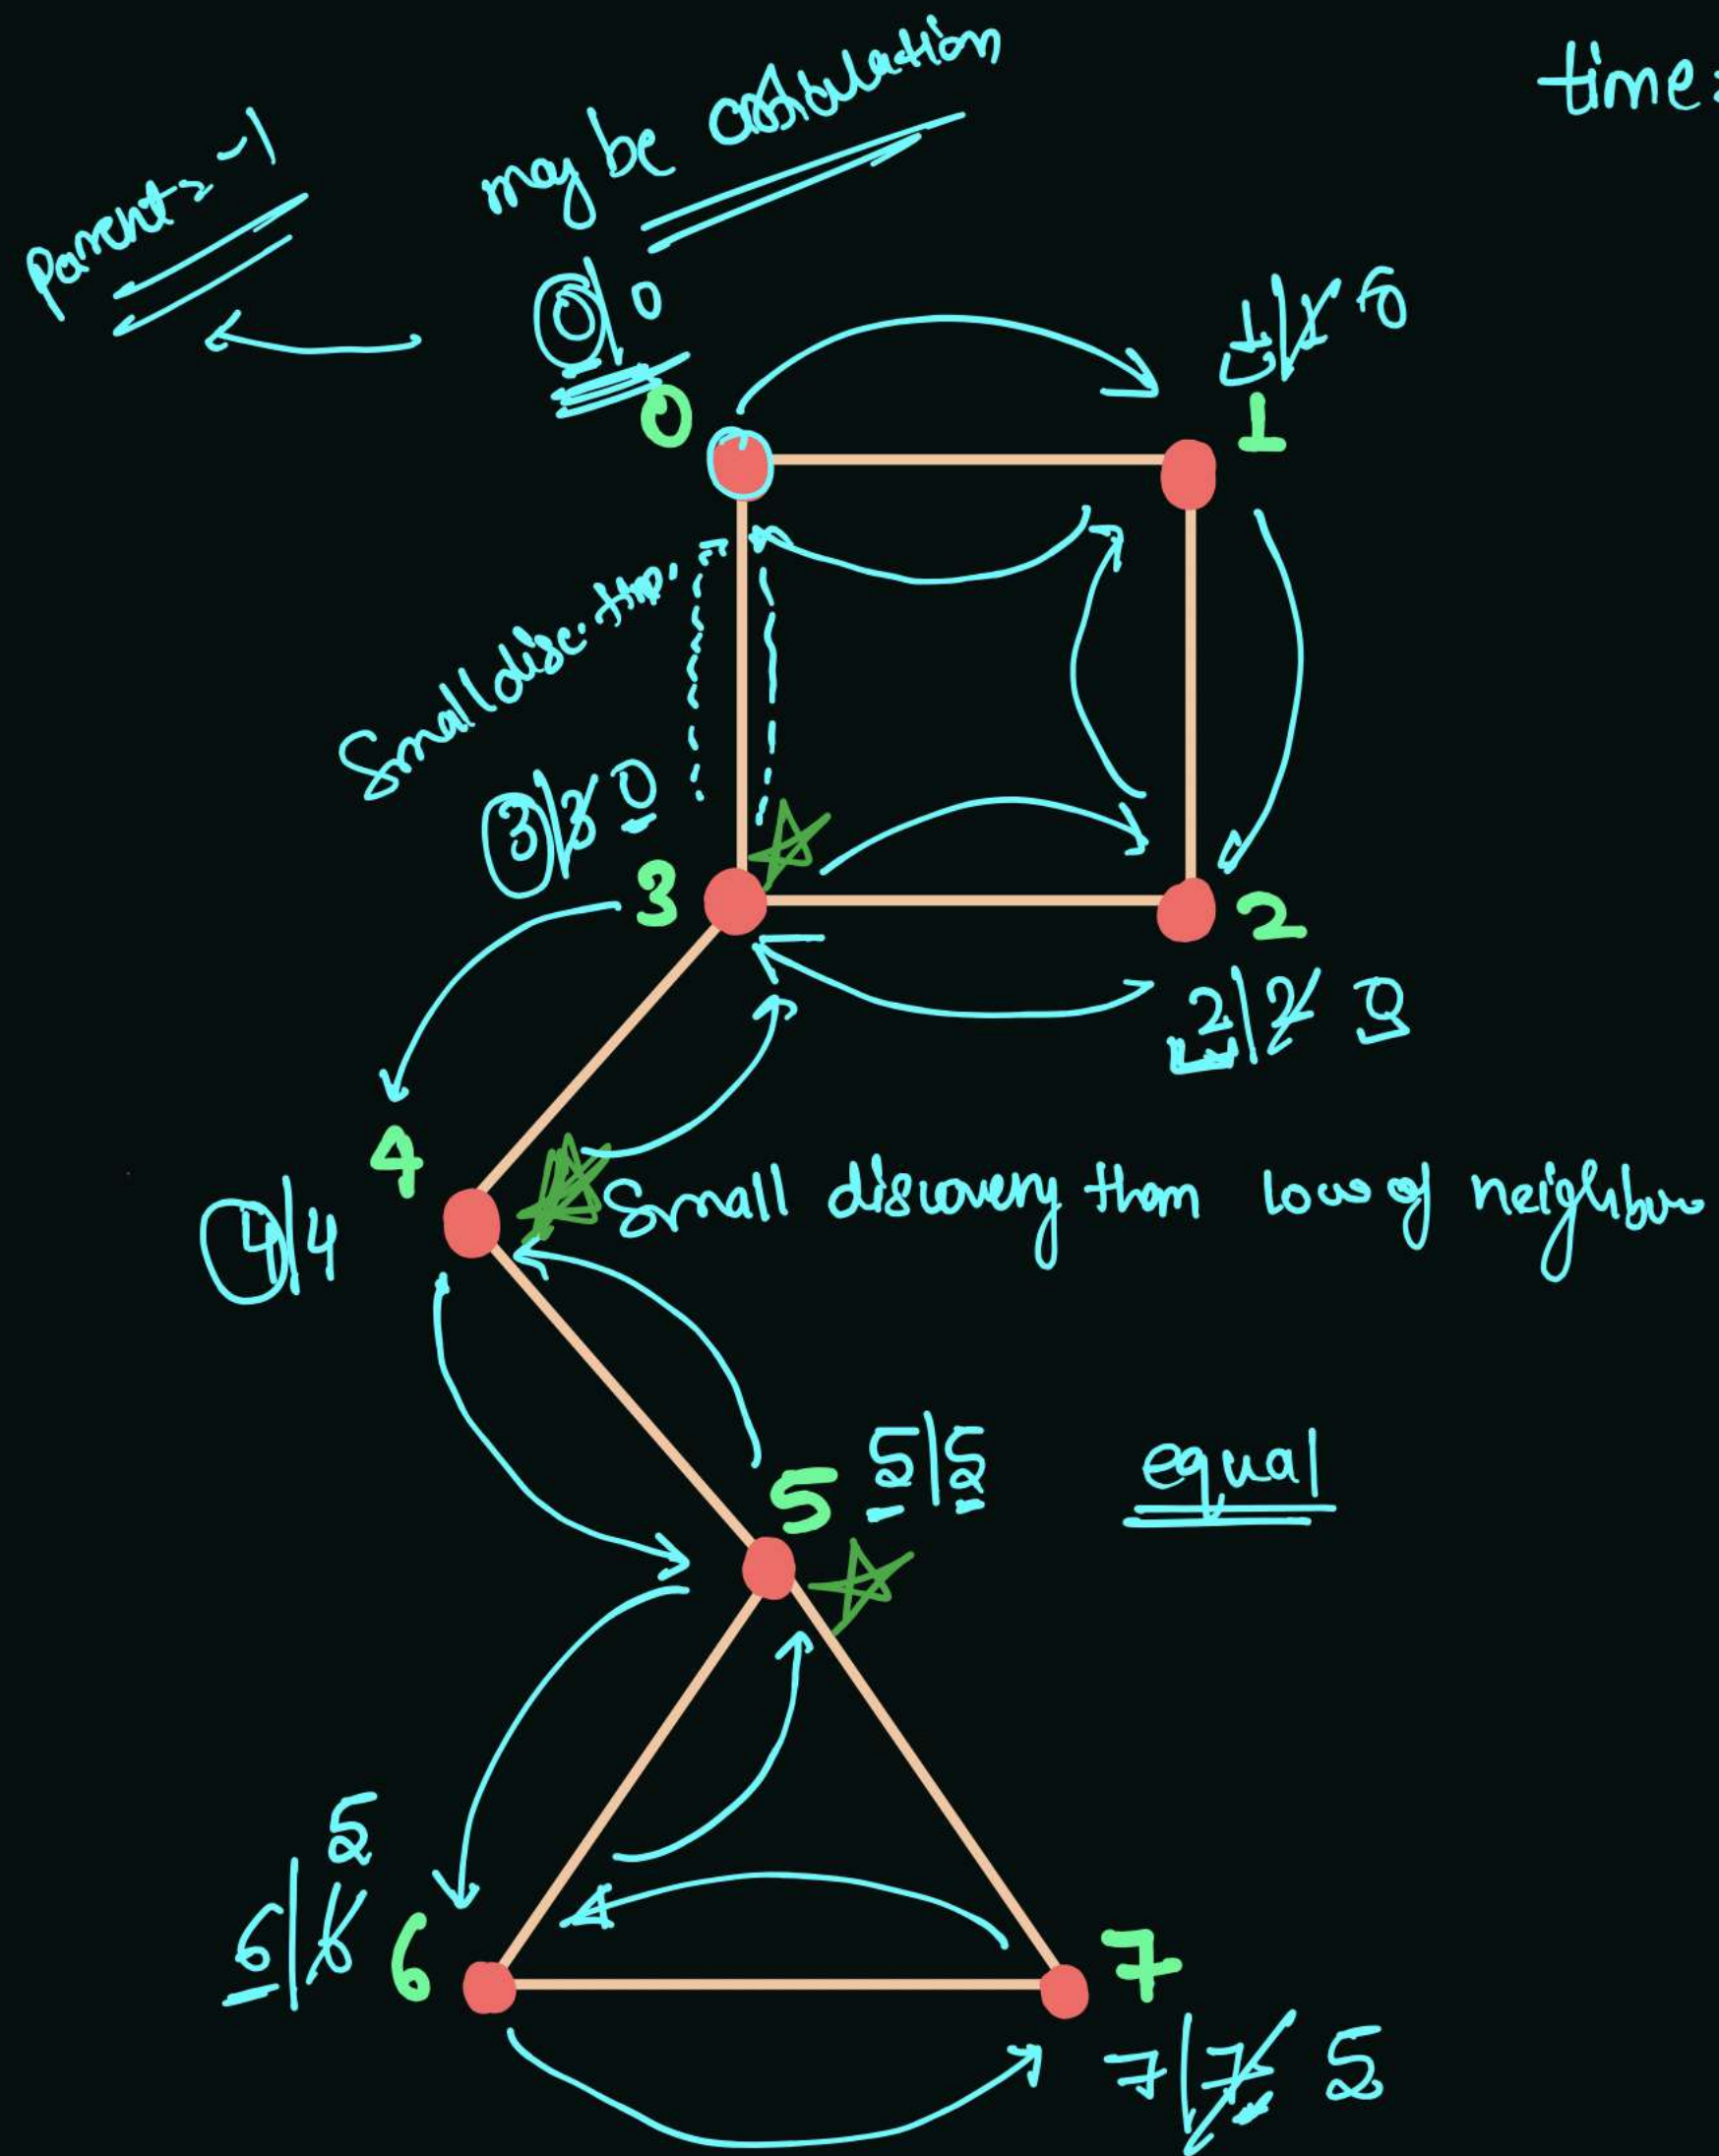 time:
may be articulation
Parent = -1
0|0
1|1 0
0
1
Small disc. time
3|3 0
3
2
2|2 0
4
4|4
Small discovery than low of neighbour
5
5|5
equal
5
6|6
6
7
7|7 5